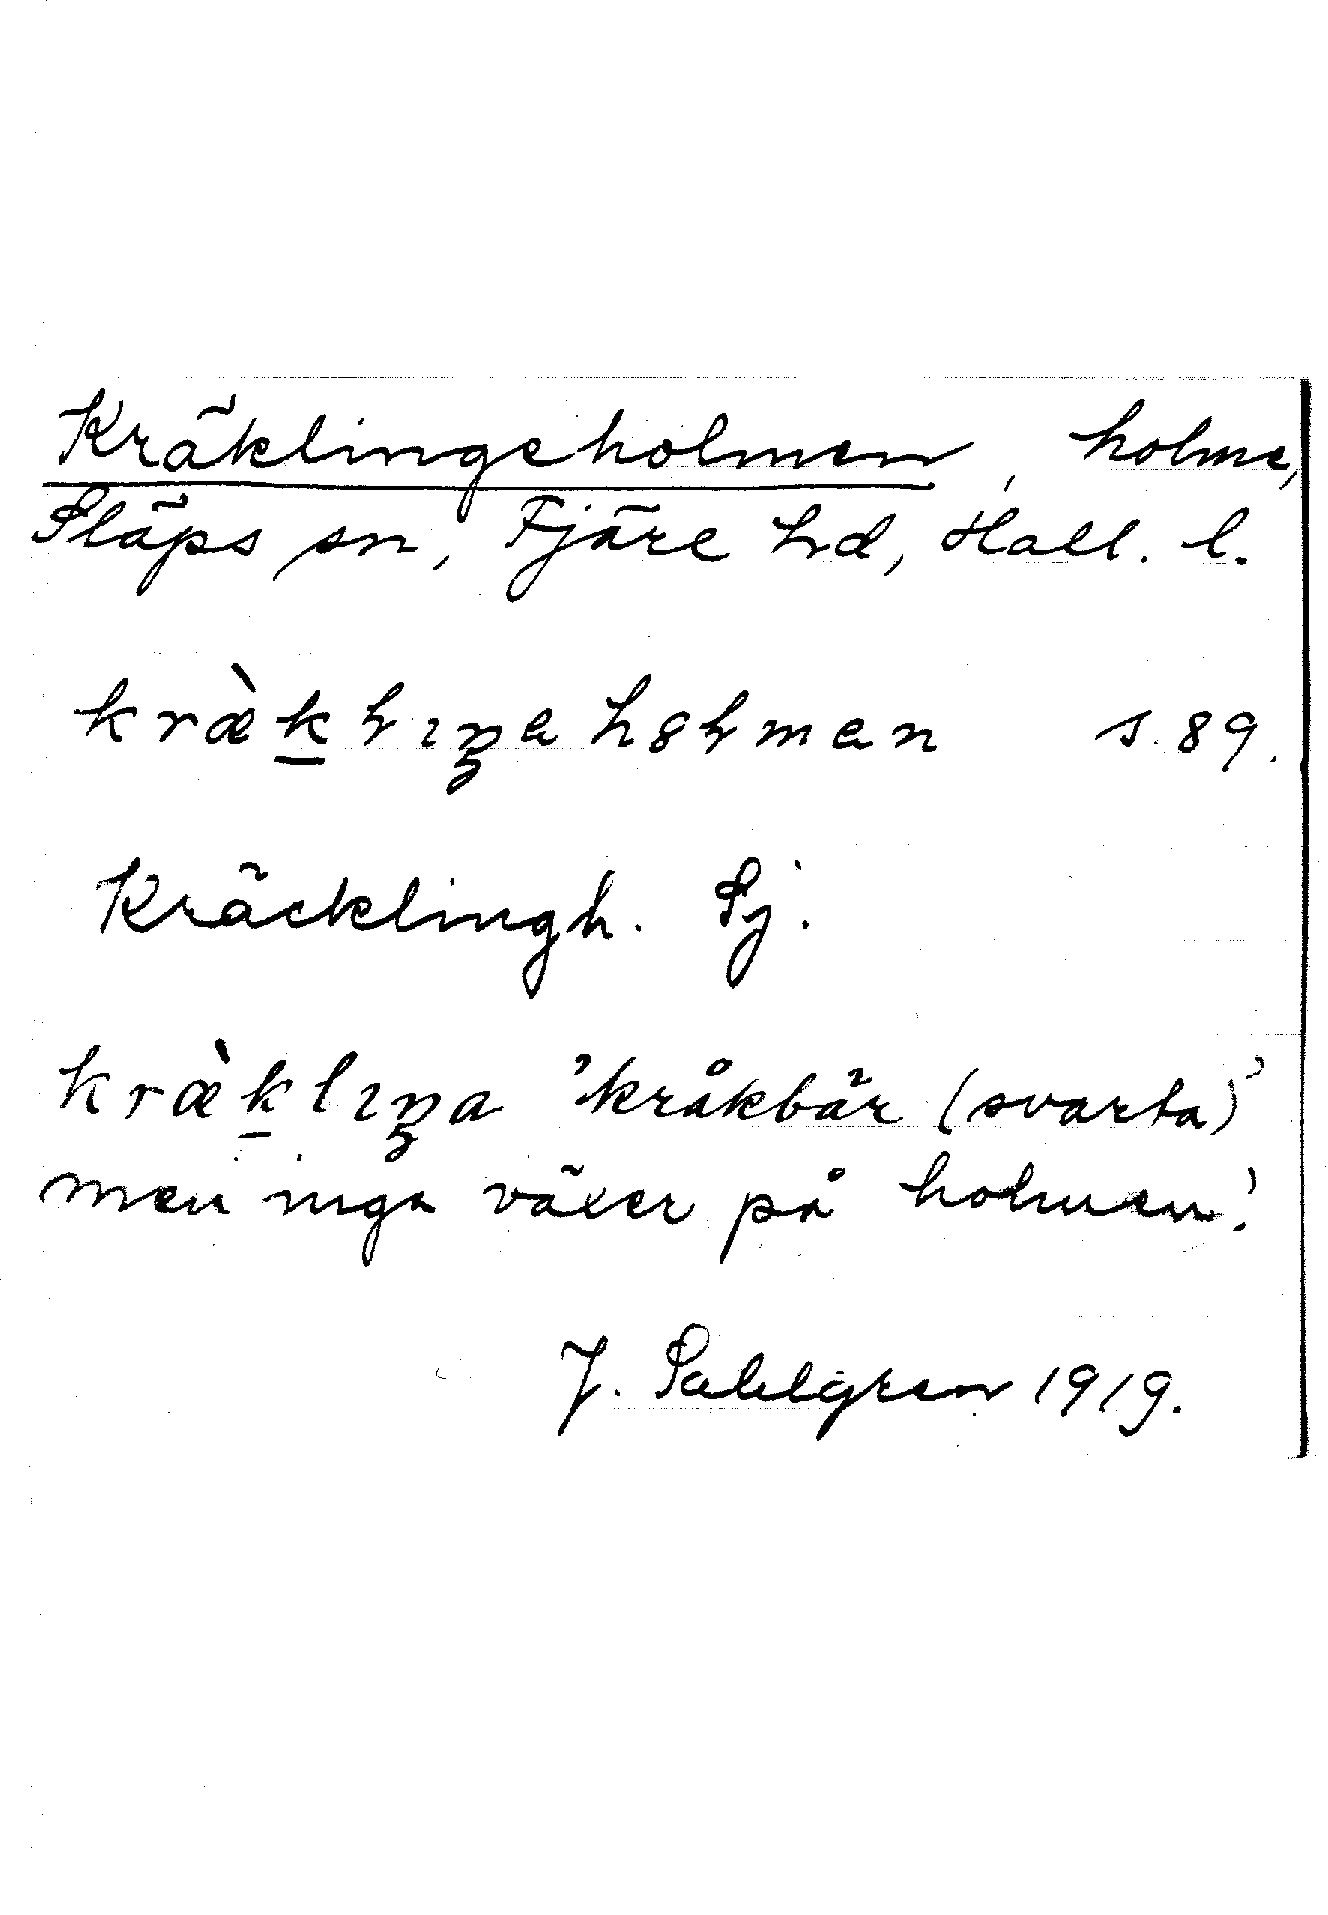 Kräklingeholmen, holme,
Släps sn, Fjäre hd, Hall. l.
kræ̀k̲ɬıŋahȣɬman s. 89.
Kräcklingh. Sj.
kræ̀k̲lıŋa 'kråkbär (svarta)'
men inga växer på holmen!
J. Sahlgren 1919.